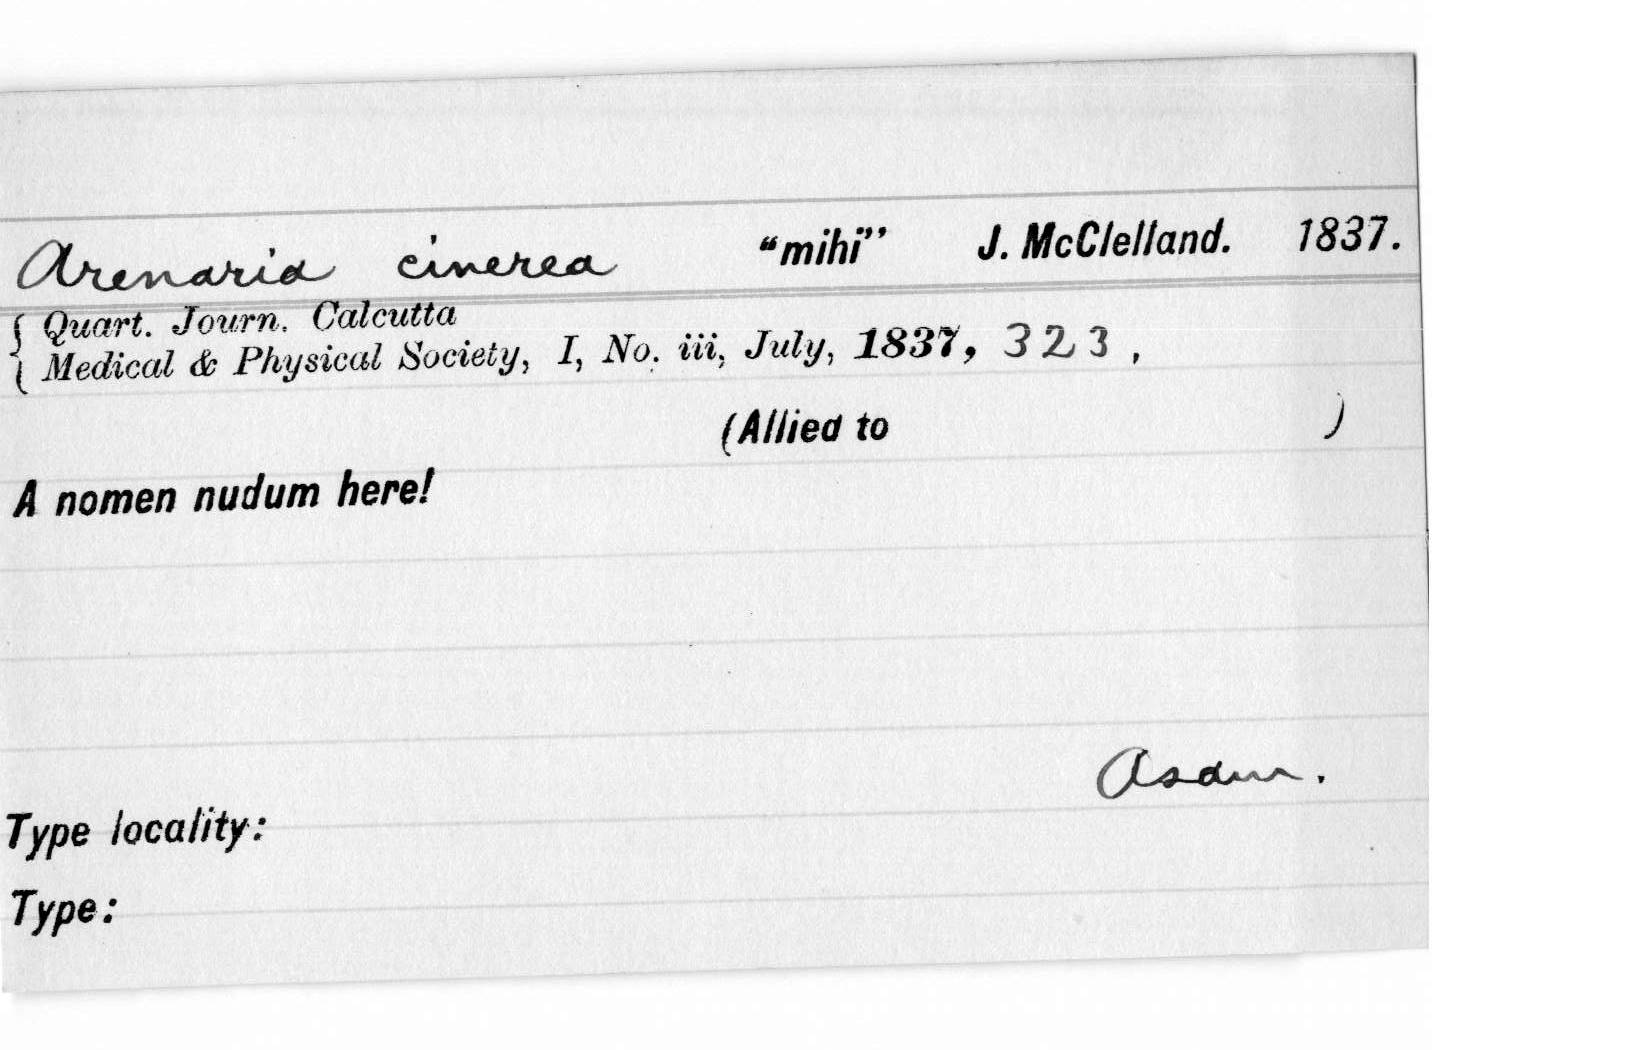 Arenaria cinerea “mihi” J. McClelland. 1837.
{ Quart. Journ. Calcutta
Medical & Physical Society, I, No. iii, July, 1837, 323,
(Allied to )
A nomen nudum here!
Asam.
Type locality:
Type: